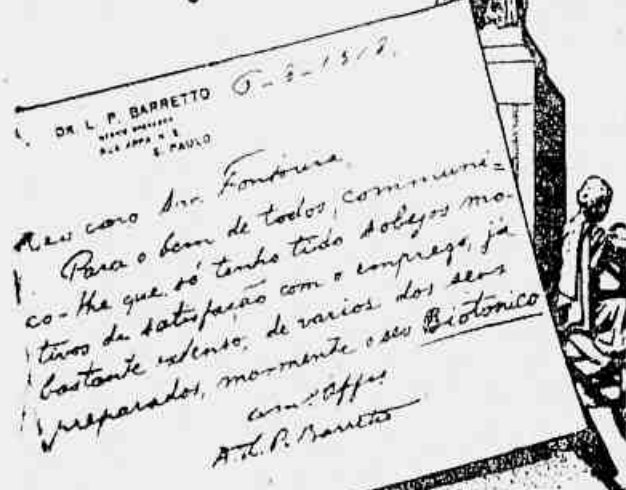 DR. L. P. BARRETTO
S. PAULO
Meu caro Snr. Fontoura,
Para o bem de todos, communi-
co-lhe que só tenho tido sobejos mo-
tivos de satisfação com o emprego, já
bastante extenso, de varios dos seus
preparados, mormente o seu Biotonico
A. L. P. Barretto